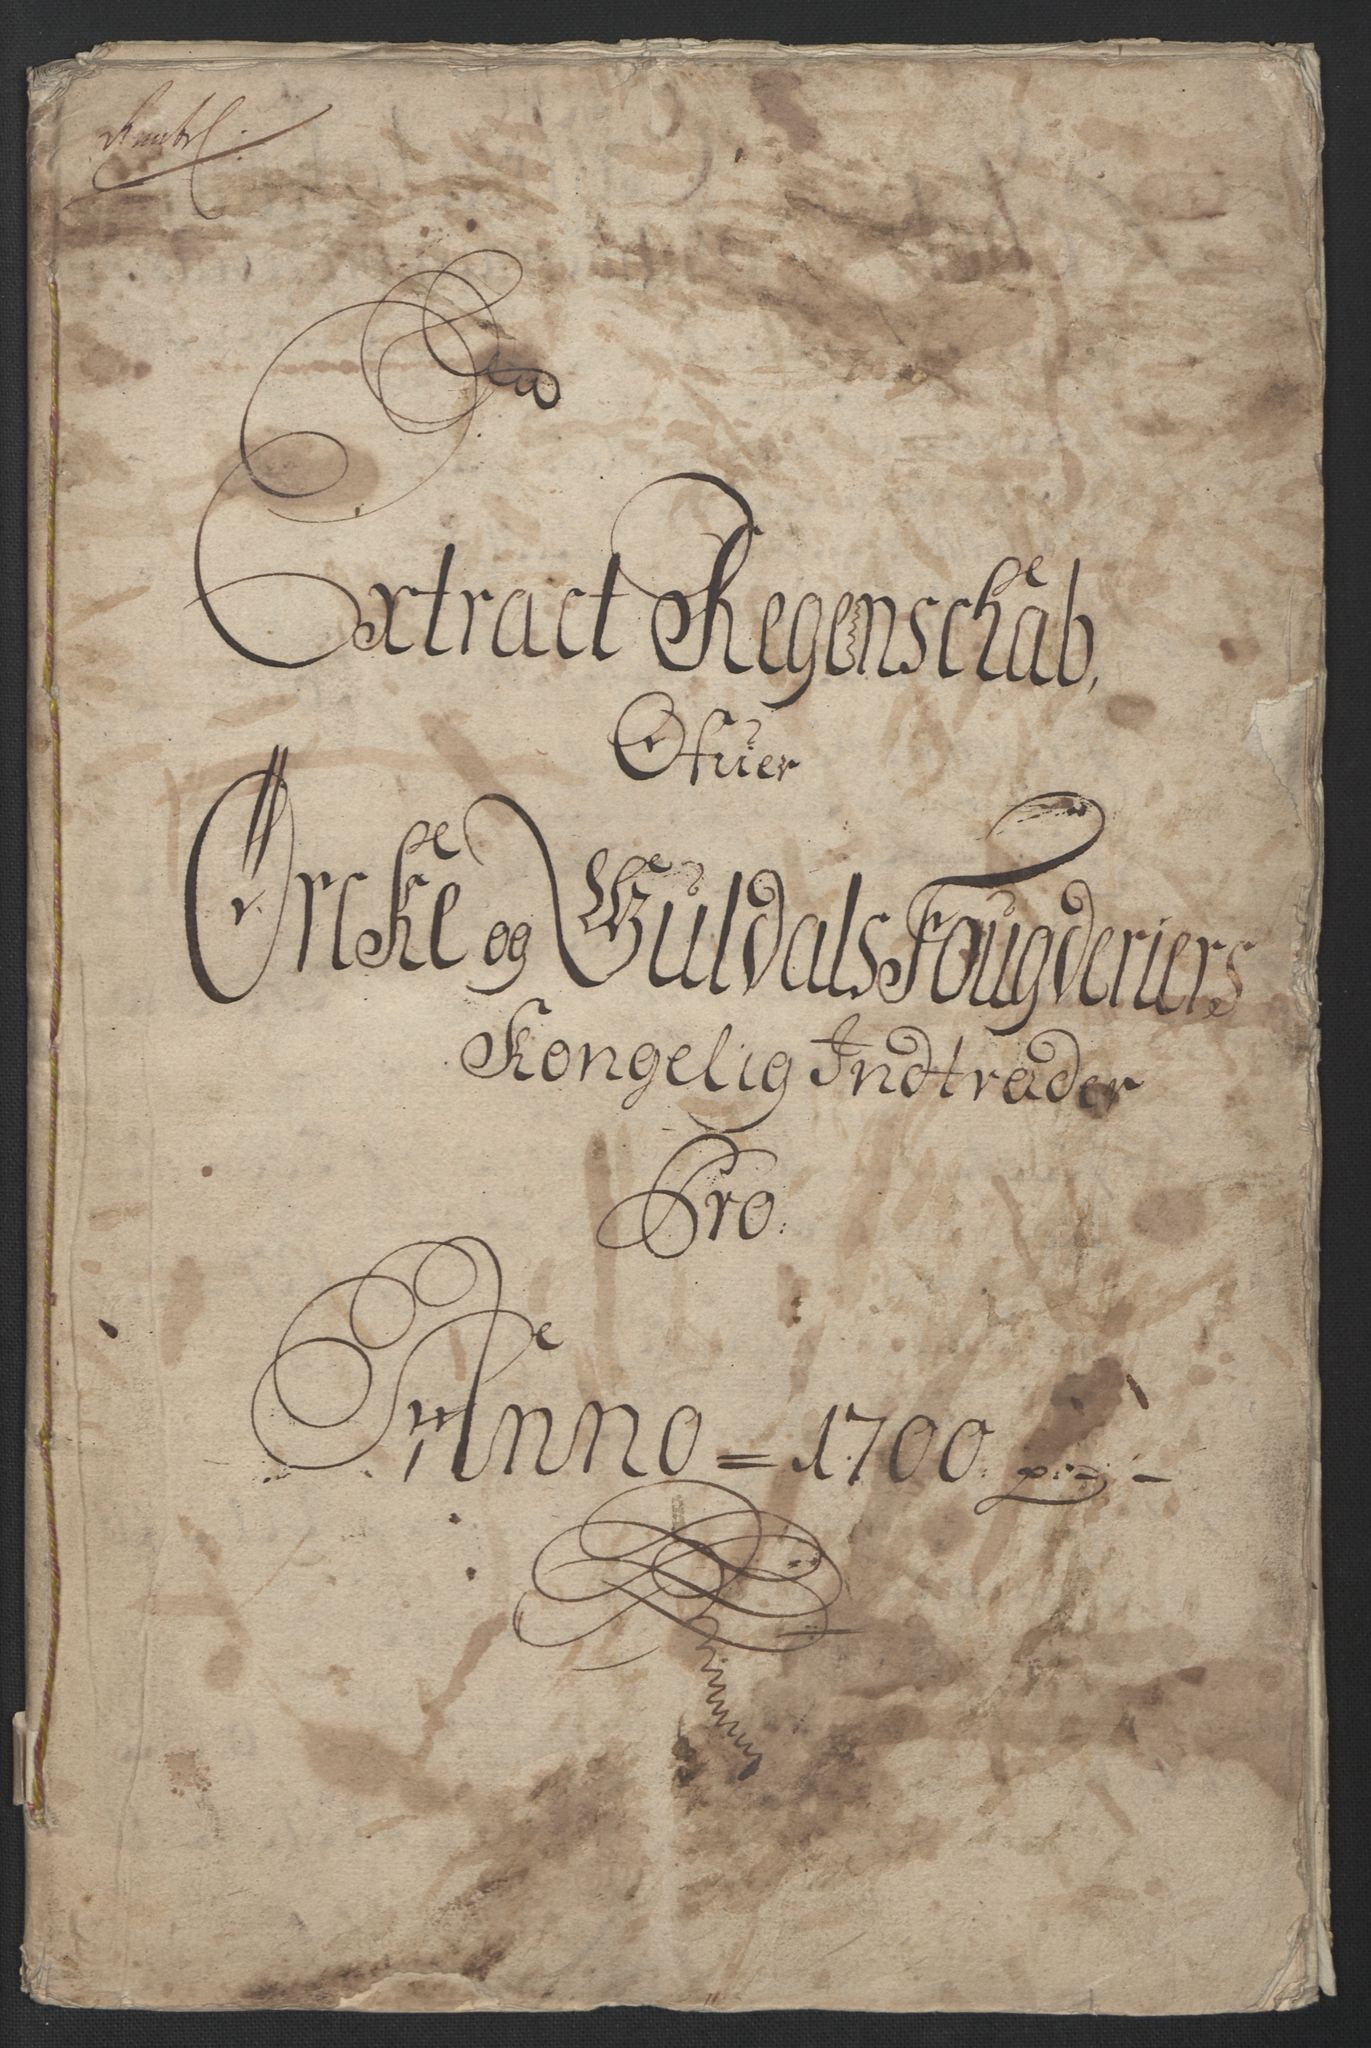 Een
Extract Regenschab,
Ofuer
Ørckel og Guldals Fougderiers
Kongelig Indtræder
Pro.
Anno = 1700.